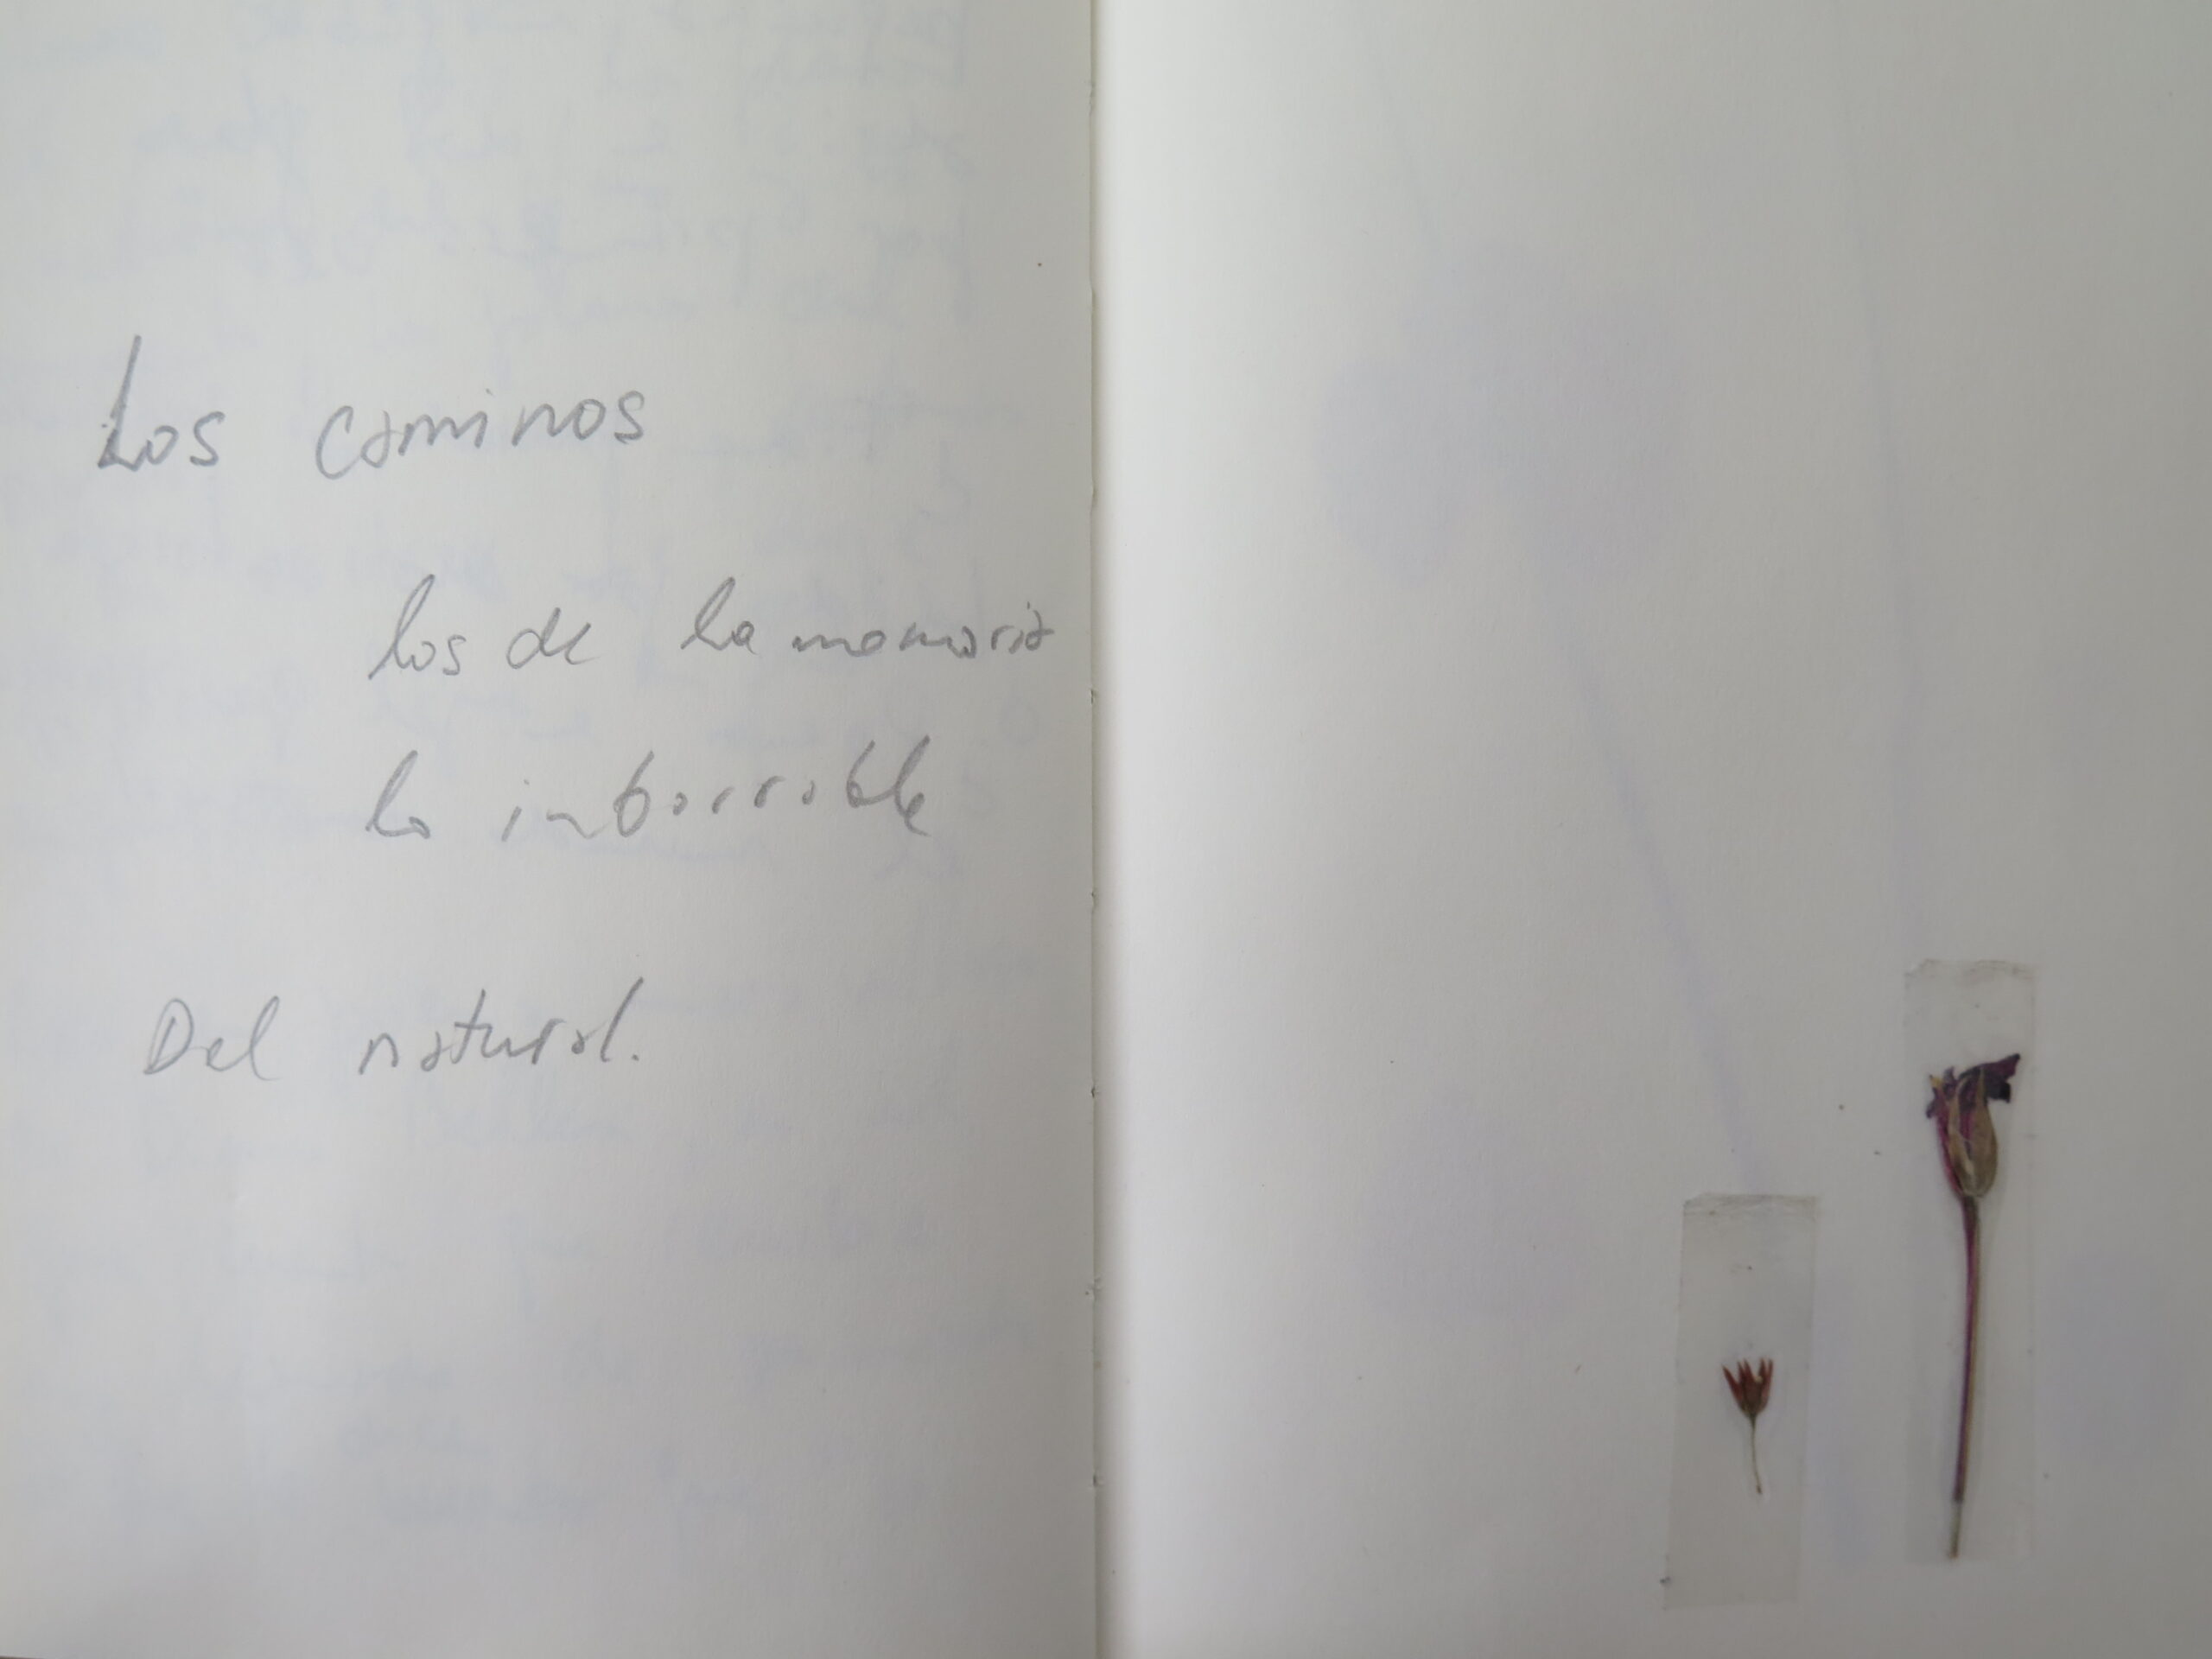 Los caminos
los de la memoria
lo imborrable
Del natural.